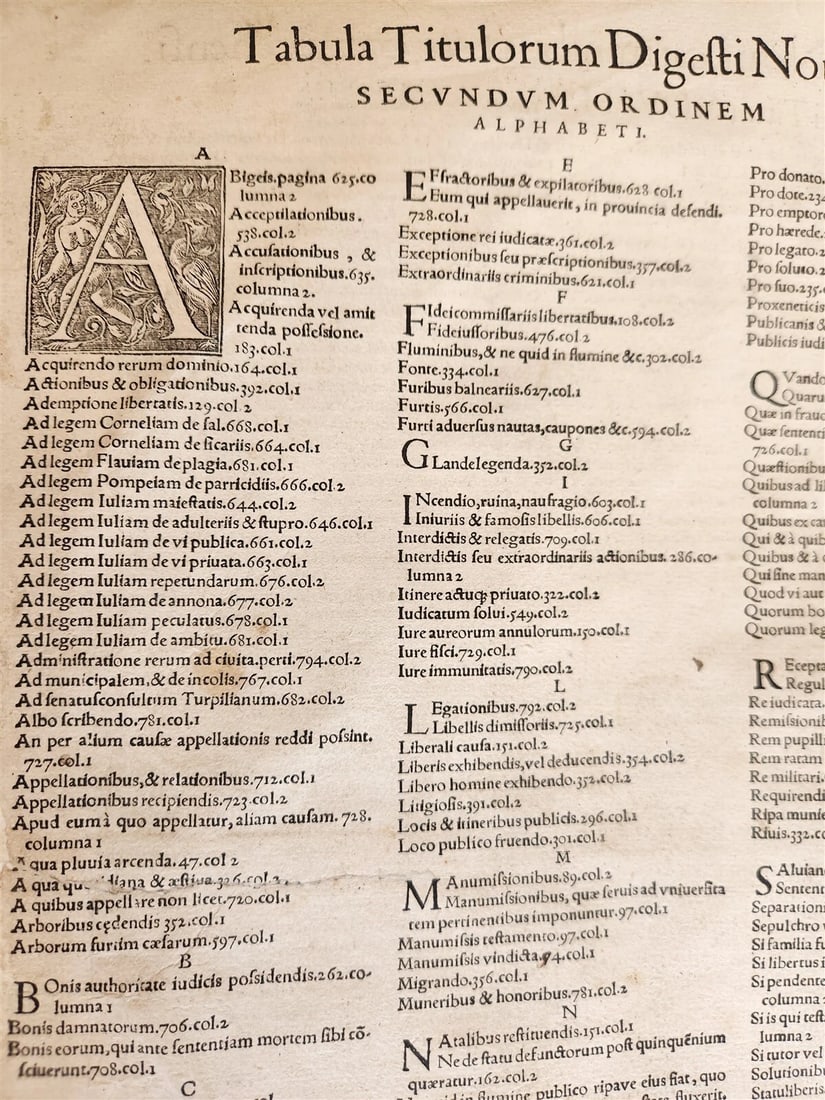 Tabula Titulorum Digeſti No
SECVNDVM ORDINEM
ALPHABETI.
A
ABigeis.pagina 625.co
lumna 2
Acceptilationibus.
538.col.2
Accuſationibus, &
inſcriptionibus.635.
columna 2.
Acquirenda vel amit
tenda poſſeſsione.
183.col.1
Acquirendo rerum dominio.164.col.1
Actionibus & obligationibus.392.col.1
Ademptione libertatis.129.col.2
Ad legem Corneliam de fal.668.col.1
Ad legem Corneliam de ſicariis.664.col.1
Ad legem Flauiam de plagia.681.col.1
Ad legem Pompeiam de parricidiis.666.col.2
Ad legem Iuliam maieſtatis.644.col.2
Ad legem Iuliam de adulteriis & ſtupro.646.col.1
Ad legem Iuliam de vi publica.661.col.2
Ad legem Iuliam de vi priuata.663.col.1
Ad legem Iuliam repetundarum.676.col.2
Ad legem Iuliam de annona.677.col.2
Ad legem Iuliam peculatus.678.col.1
Ad legem Iuliam de ambitu.681.col.1
Adminiſtratione rerum ad ciuita.perti.794.col.2
Ad municipalem,& de incolis.767.col.1
Ad ſenatuſconſultum Turpilianum.682.col.2
Albo ſcribendo.781.col.1
An per alium cauſæ appellationis reddi poſsint.
727.col.1
Appellationibus,& relationibus.712.col.1
Appellationibus recipiendis.723.col.2
Apud eum à quo appellatur, aliam cauſam. 728.
columna 1
Aqua pluuia arcenda.47.col 2
A qua & æſtiua.326.col.2.
A quibus appellare non licet.720.col.1
Arboribus cędendis 352.col.1
Arborum furtim cæſarum.597.col.1
B
BOnis authoritate iudicis poſsidendis.262.co-
lumna 1
Bonis damnatorum.706.col.2
Bonis eorum, qui ante ſententiam mortem ſibi cō-
ſciuerunt.708.col.1
C
E
EFfractoribus & expilatoribus.628 col.1
Eum qui appellauerit, in prouincia defendi.
728.col.1
Exceptione rei iudicatæ.361.col.2
Exceptionibus ſeu præſcriptionibus.357.col.2
Extraordinariis criminibus.621.col.1
F
FIdeicommiſſariis libertatibus.108.col.2
Fideiuſſoribus.476.col 2
Fluminibus,& ne quid in flumine &c.302.col.2
Fonte.334.col.1
Furibus balneariis.627.col.1
Furtis.566.col.1
Furti aduerſus nautas,caupones &c.594.col.2
G
GLande legenda.352.col.2
I
INcendio,ruina,naufragio.603.col.1
Iniuriis & famoſis libellis.606.col.1
Interdictis & relegatis.709.col.1
Interdictis ſeu extraordinariis actionibus. 286.co-
lumna 2
Itinere actuq; priuato.322.col.2
Iudicatum ſolui.549.col.2
Iure aureorum annulorum.150.col.1
Iure fiſci.729.col.1
Iure immunitatis.790.col.2
L
LEgationibus.792.col.2
Libellis dimiſſoriis.725.col.1
Liberali cauſa.151.col.2
Liberis exhibendis,vel deducendis.354.col.2
Libero homine exhibendo.352.col.2
Litigioſis.391.col.2
Locis & itineribus publicis.296.col.1
Loco publico fruendo.301.col.1
M
MAnumiſsionibus.89.col.2
Manumiſsionibus, quæ ſeruis ad vniuerſita
tem pertinentibus imponuntur.97.col.1
Manumiſsis teſtamento.97.col.1
Manumiſsis vindicta.94.col.1
Migrando.356.col.1
Muneribus & honoribus.781.col.2
N
NAtalibus reſtituendis.151.col.1
Ne de ſtatu defunctorum poſt quinquēnium
quæratur.162.col.2
in flumine publico ripave eius fiat, quo
fluxerit.
Pro donato.
Pro dote.234
Pro emptore
Pro hærede.
Pro legato.2
Pro ſoluto.2
Pro ſuo.235.
Proxeneticis
Publicanis &
Publicis iudi
QVando
Quaru
Quæ in frauc
Quæ ſententi
726.col.1
Quæſtionibu
Quibus ad li
columna 2
Quibus ex ca
Qui & à quib
Quibus & à
Qui ſine man
Quod vi aut
Quorum bo
Quorum leg
REcepta
Regul
Re iudicata.
Remiſsioni
Rem pupill
Rem ratam
Re militari.
Requirendi
Ripa munie
Riuis.332.c
SAluian
Sentent
Separation
Sepulchro v
Si familia fu
Si libertus i
Si pendente
columna
Si is qui teſt
lumna 2
Si tutor vel
Solutionibu
Statuliberis